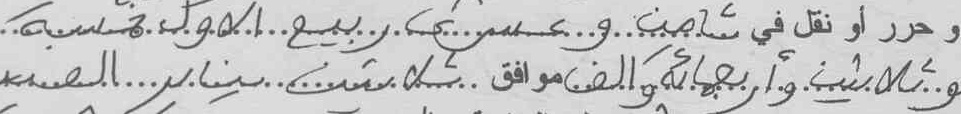 و حرر أو نقل في ثامن وعشري ربيع الاول خمسة
وثلاثين وأربعمائة وألف موافق ثلاثين يناير